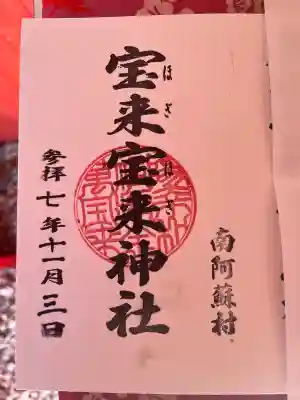 南阿蘇村
宝来宝来神社
ほぎ ほぎ
参拝 七年十一月三日